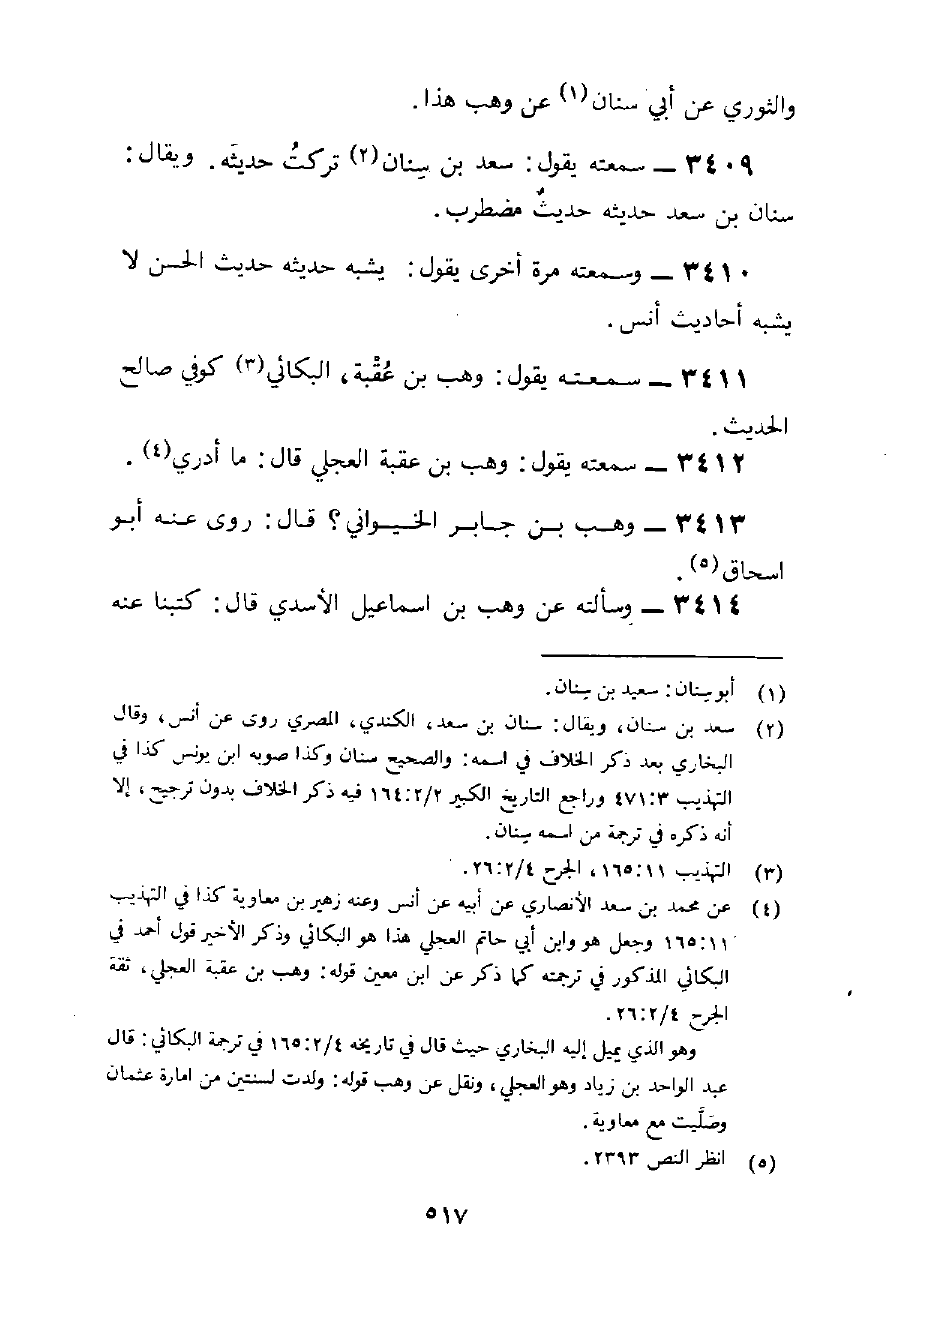 والثوري عن أبي سنان(١) عن وهب هذا.
٣٤٠٩ ــ سمعته يقول: سعد بن سِنان(٢) تركتُ حديثَه. ويقال:
سنان بن سعد حديثه حديثٌ مضطرب.
٣٤١٠ ــ وسمعته مرة أخرى يقول: يشبه حديثه حديث الحسن لا
يشبه أحاديث أنس.
٣٤١١ ــ سمعته يقول: وهب بن عُقْبة، البكائي(٣) كوفي صالح
الحديث.
٣٤١٢ ــ سمعته يقول: وهب بن عقبة العجلي قال: ما أدري(٤).
٣٤١٣ ــ وهب بن جابر الخيواني؟ قال: روى عنه أبو
اسحاق(٥).
٣٤١٤ ــ وسألته عن وهب بن اسماعيل الأسدي قال: كتبنا عنه
(١) أبو سِنان: سعيد بن سِنان.
(٢) سعد بن سنان، ويقال: سنان بن سعد، الكندي، المصري روى عن أنس، وقال
البخاري بعد ذكر الخلاف في اسمه: والصحيح سنان وكذا صوبه ابن يونس كذا في
التهذيب ٤٧١:٣ وراجع التاريخ الكبير ١٦٤:٢/٢ فيه ذكر الخلاف بدون ترجيح، إلا
أنه ذكره في ترجمة من اسمه سِنان.
(٣) التهذيب ١٦٥:١١، الجرح ٢٦:٢/٤.
(٤) عن محمد بن سعد الأنصاري عن أبيه عن أنس وعنه زهير بن معاوية كذا في التهذيب
١٦٥:١١ وجعل هو وابن أبي حاتم العجلي هذا هو البكائي وذكر الأخير قول أحمد في
البكائي المذكور في ترجمته كما ذكر عن ابن معين قوله: وهب بن عقبة العجلي، ثقة
الجرح ٢٦:٢/٤.
وهو الذي يميل إليه البخاري حيث قال في تاريخه ١٦٥:٢/٤ في ترجمة البكائي: قال
عبد الواحد بن زياد وهو العجلي، ونقل عن وهب قوله: ولدت لسنتين من امارة عثمان
وصَلَّيت مع معاوية.
(٥) انظر النص ٢٣٩٣.
٥١٧